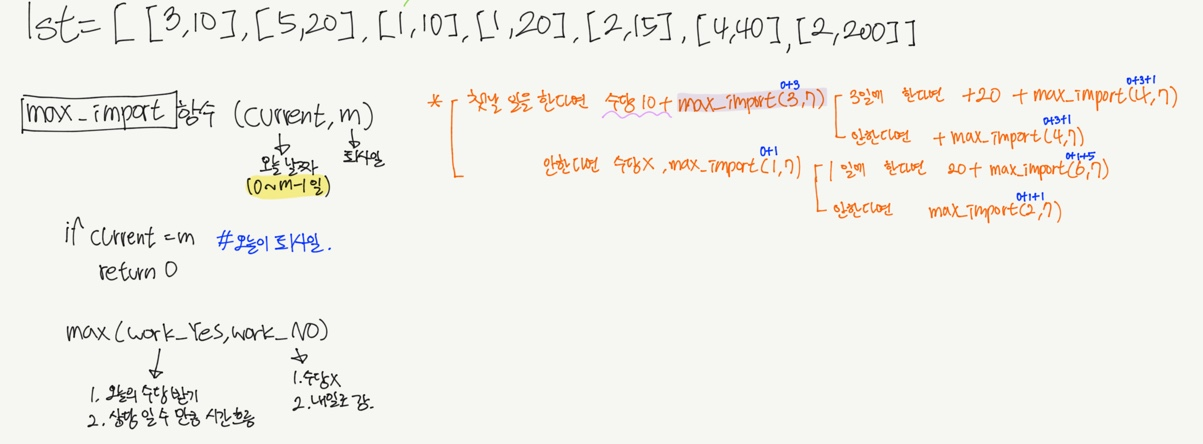 lst = [ [3,10], [5,20], [1,10], [1,20], [2,15], [4,40], [2,200]]
max_import 함수 (current, m)
오늘 날짜
(0~m-1일)
퇴사일
if current = m #오늘이 퇴사일.
return 0
max(work_Yes, work_NO)
1. 오늘의 수당 받기
2. 상담 일수 만큼 시간 흐름
1. 수당X
2. 내일로 감.
* 첫날 일을 한다면 수당10 + max_import(3,7)
0+3
3일에 한다면 +20 + max_import(4,7)
0+3+1
안한다면 + max_import(4,7)
0+3+1
안한다면 수당X, max_import(1,7)
0+1
1일에 한다면 20 + max_import(6,7)
0+1+5
안한다면 max_import(2,7)
0+1+1